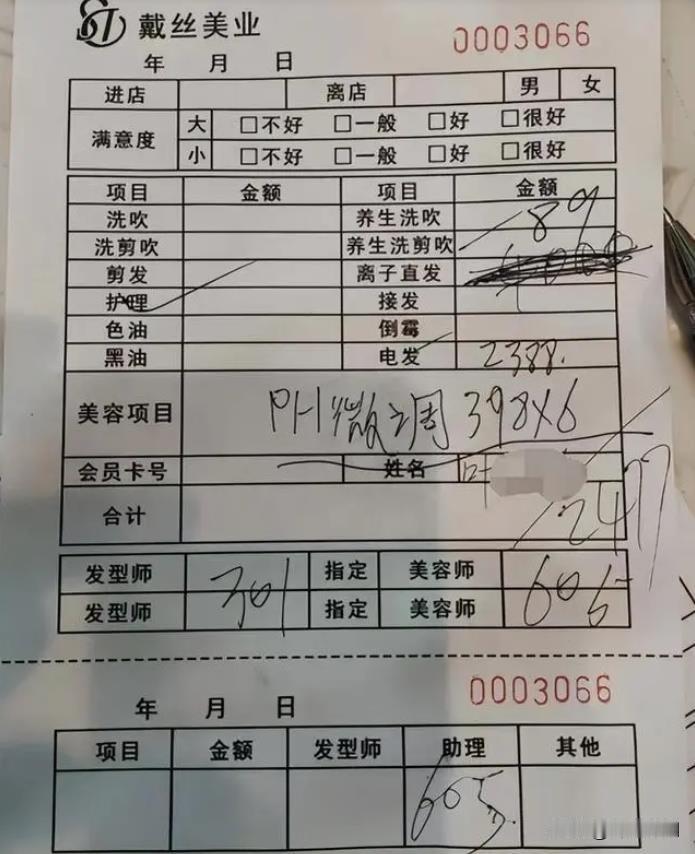 戴丝美业
0003066
年 月 日
进店 离店 男 女
满意度 大 □不好 □一般 □好 □很好
小 □不好 □一般 □好 □很好
项目 金额 项目 金额
洗吹 养生洗吹 89
洗剪吹 养生洗剪吹
剪发 离子直发
护理 接发
色油 倒霉
黑油 电发 2388.
美容项目 PH微调 398×6
会员卡号 姓名 叶
合计 2477
发型师 301 指定 美容师 605
发型师 指定 美容师
0003066
年 月 日
项目 金额 发型师 助理 其他
605